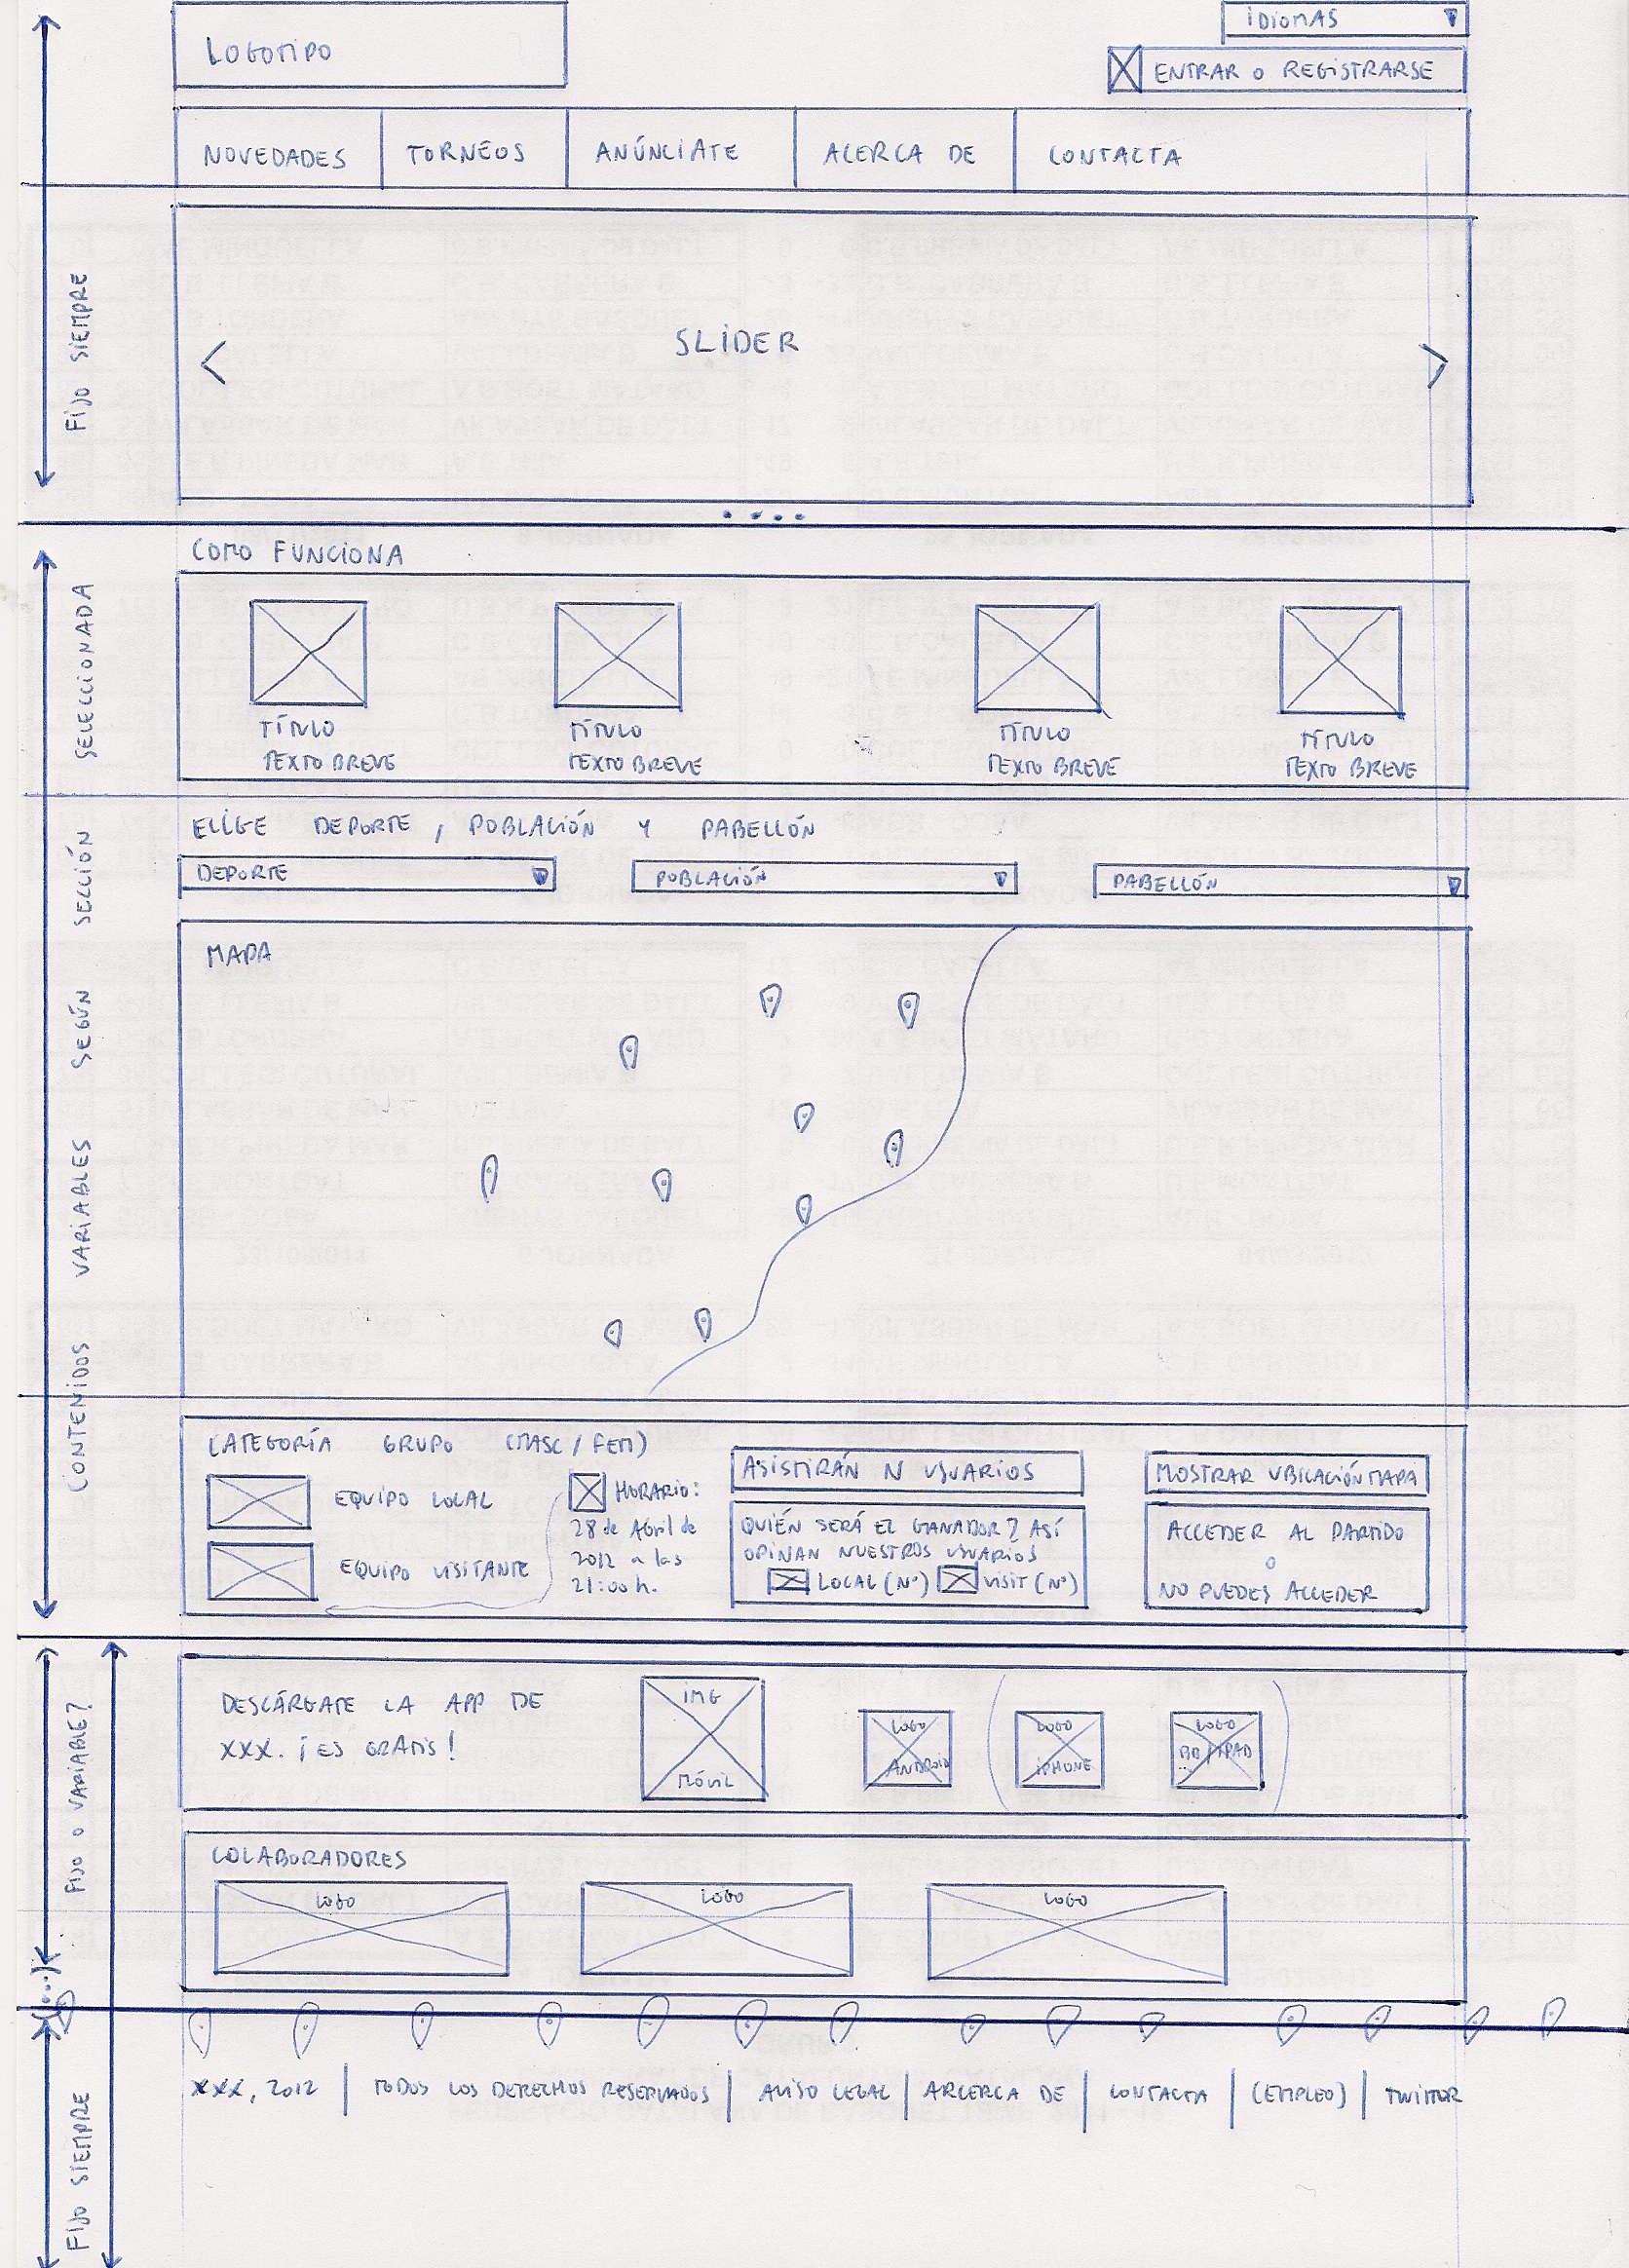 LOGOTIPO
IDIOMAS
ENTRAR O REGISTRARSE
NOVEDADES
TORNEOS
ANÚNCIATE
ACERCA DE
CONTACTA
FIJO SIEMPRE
SLIDER
COMO FUNCIONA
TÍTULO
TEXTO BREVE
TÍTULO
TEXTO BREVE
TÍTULO
TEXTO BREVE
TÍTULO
TEXTO BREVE
CONTENIDOS VARIABLES SEGÚN SECCIÓN SELECCIONADA
ELIGE DEPORTE, POBLACIÓN Y PABELLÓN
DEPORTE
POBLACIÓN
PABELLÓN
MAPA
CATEGORÍA GRUPO (MASC / FEM)
EQUIPO LOCAL
EQUIPO VISITANTE
HORARIO:
28 de Abril de
2012 a las
21:00 h.
ASISTIRÁN N USUARIOS
QUIÉN SERÁ EL GANADOR? ASÍ
OPINAN NUESTROS USUARIOS
LOCAL (Nº) VISIT (Nº)
MOSTRAR UBICACIÓN MAPA
ACCEDER AL PARTIDO
O
NO PUEDES ACCEDER
FIJO O VARIABLE?
DESCÁRGATE LA APP DE
XXX. ¡ES GRATIS!
IMG
MÓVIL
LOGO
ANDROID
LOGO
IPHONE
LOGO
BB / IPAD
...
COLABORADORES
LOGO
LOGO
LOGO
(...)
FIJO SIEMPRE
XXX, 2012 | TODOS LOS DERECHOS RESERVADOS | AVISO LEGAL | ARCERCA DE | CONTACTA | (EMPLEO) | TWITTER